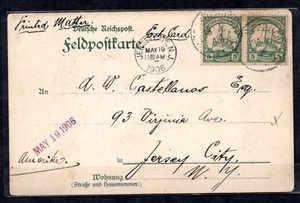 Printed Matter.
Deutsche Reichspost.
Feldpostkarte
Post Card
N.J.
MAY 19
1130AM
1906
5 5
An
A. W. Castellanos Esq.
93 Virginia Ave
x
MAY 19 1906
Amerika.
Jersey City.
N. Y.
Wohnung
(Straße und Hausnummer.)